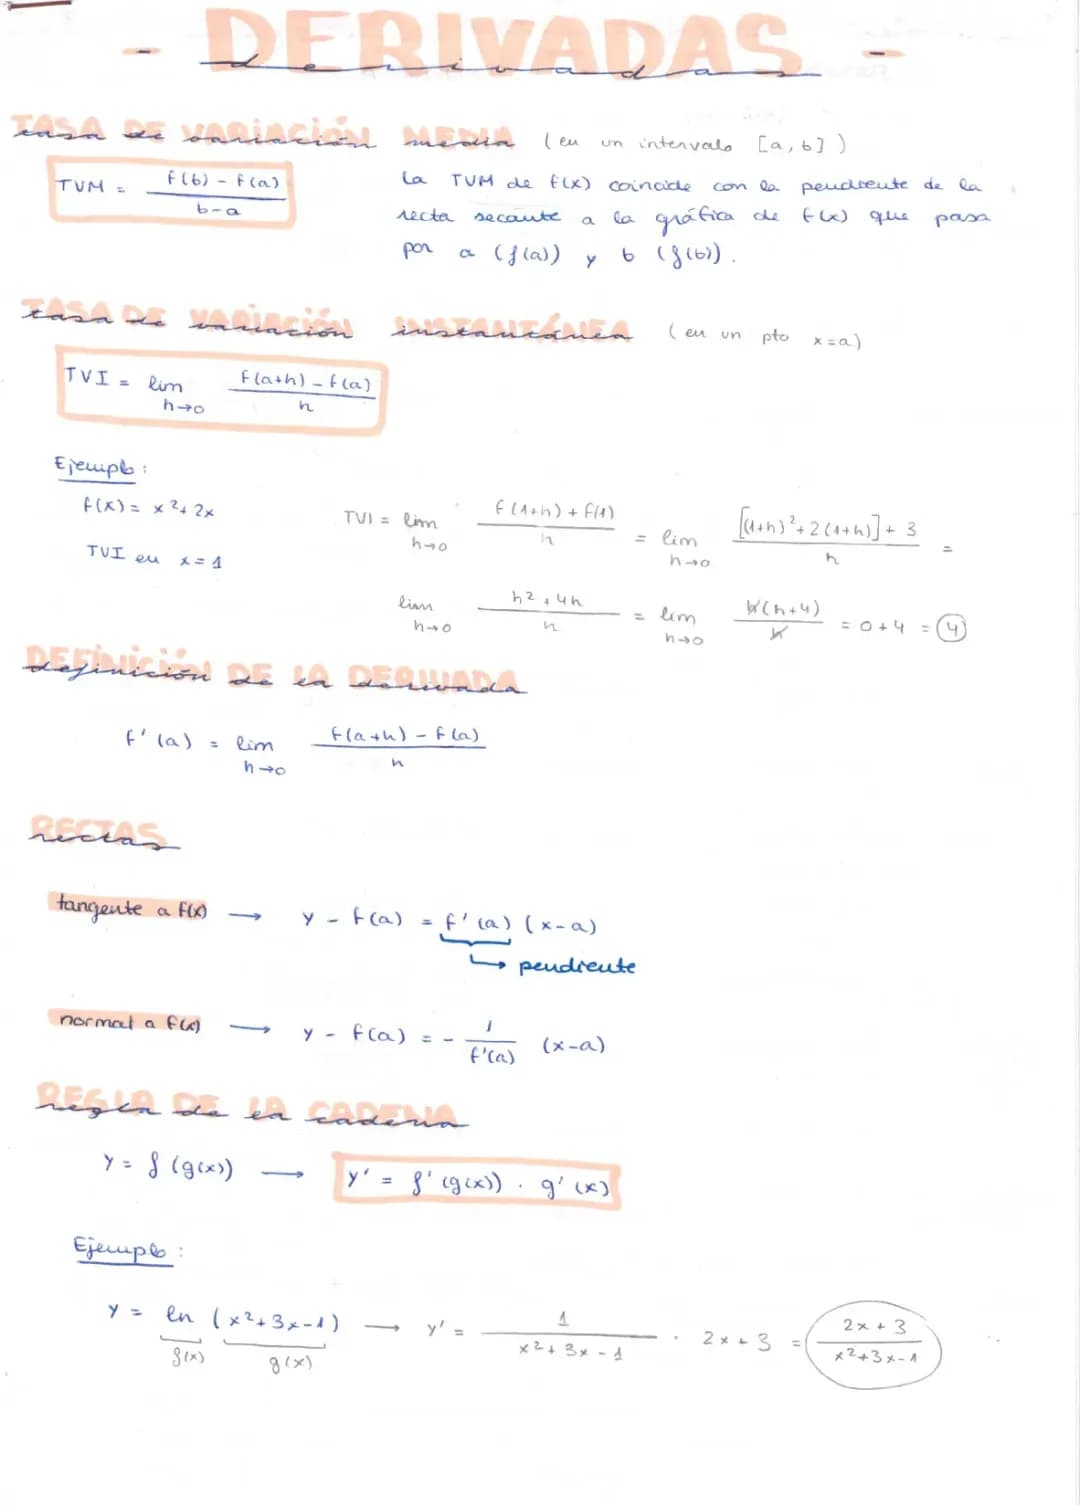 - DERIVADAS -
derivadas
TASA DE VARIACIÓN MEDIA (en un intervalo [a,b])
TVM = f(b) - f(a) / b-a
La TVM de f(x) coincide con la pendiente de la
recta secante a la gráfica de f(x) que pasa
por a (f(a)) y b (f(b)).
TASA DE VARIACIÓN INSTANTÁNEA (en un pto x=a)
TVI = lim h→0 f(a+h) - f(a) / h
Ejemplo:
f(x) = x²+2x
TVI en x=1
TVI = lim h→0 f(1+h) + f(1) / h = lim h→0 [(1+h)²+2(1+h)] + 3 / h =
lim h→0 h²+4h / h = lim h→0 h(h+4) / h = 0+4 = 4
DEFINICIÓN DE LA DERIVADA
f'(a) = lim h→0 f(a+h) - f(a) / h
RECTAS
tangente a f(x) → y - f(a) = f'(a) (x-a)
↳ pendiente
normal a f(x) → y - f(a) = - 1 / f'(a) (x-a)
REGLA DE LA CADENA
y = f(g(x)) → y' = f'(g(x)) · g'(x)
Ejemplo:
y = ln (x²+3x-1) → y' = 1 / x²+3x-1 · 2x+3 = 2x+3 / x²+3x-1
f(x) g(x)